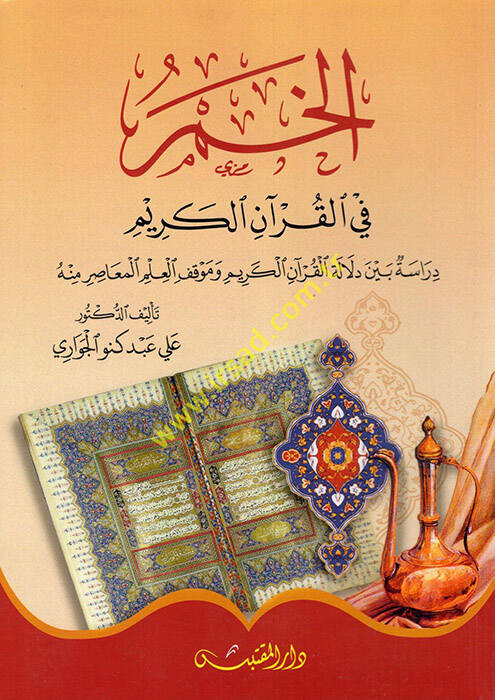 الخمر
رمزي
في القرآن الكريم
دِرَاسَةٌ بَيْنَ دَلَالَةِ القُرآنِ الكَرِيمِ وَمَوقِفِ العِلْمِ المُعَاصِرِ مِنْهُ
تأليف الدكتور
علي عبد كنو الجواري
دار المقتبس